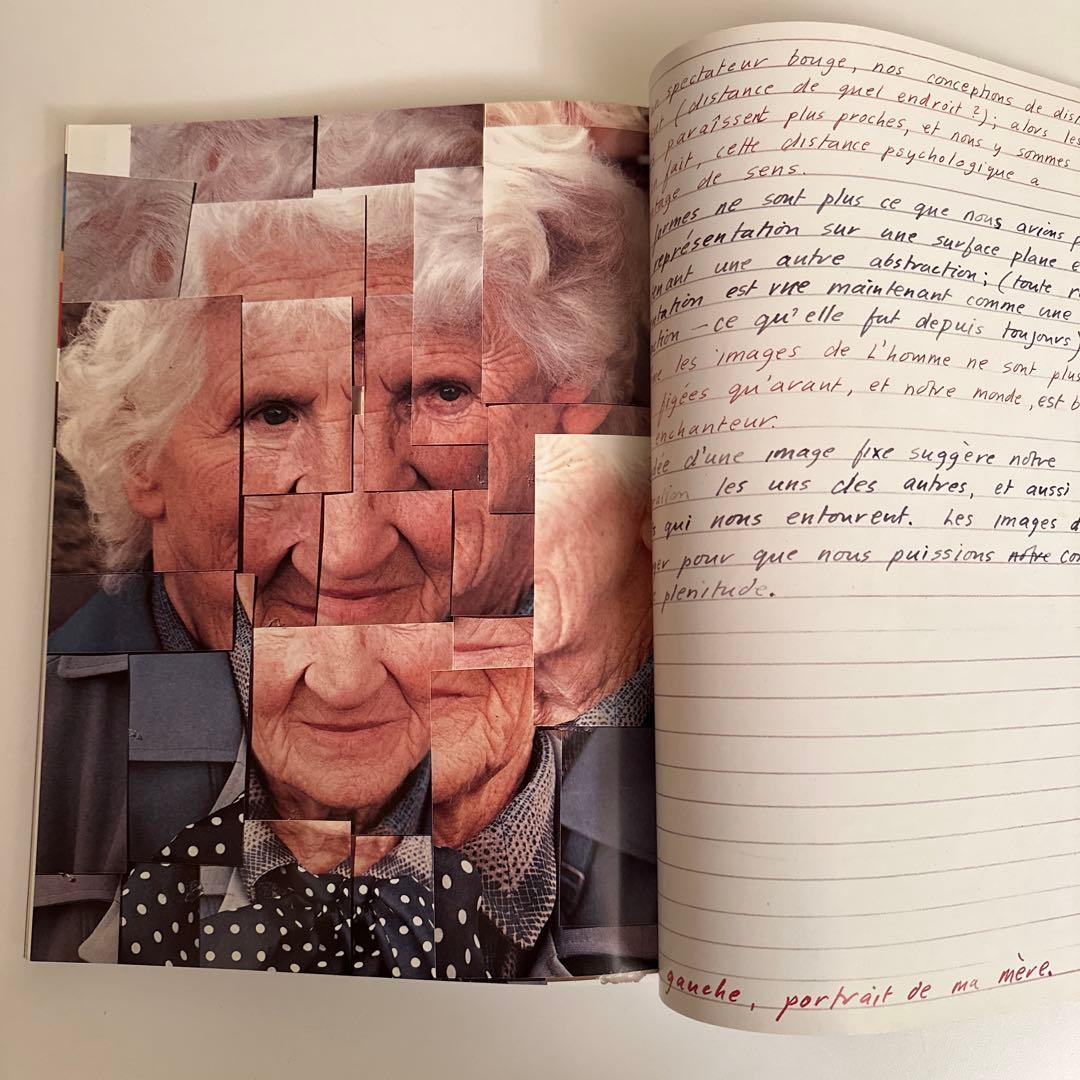 spectateur bouge, nos conceptions de
(distance de quel endroit ?); alors les
paraîssent plus proches, et nous y sommes
fait, cette distance psychologique a
de sens.
ne sont plus ce que nous avions
représentation sur une surface plane
une autre abstraction; (toute
est vue maintenant comme une
– ce qu'elle fut depuis toujours)
les images de L'homme ne sont plus
figées qu'avant, et notre monde, est
enchanteur.
d'une image fixe suggère notre
les uns des autres, et aussi
qui nous entourent. Les images
pour que nous puissions notre
plenitude.
gauche, portrait de ma mère.